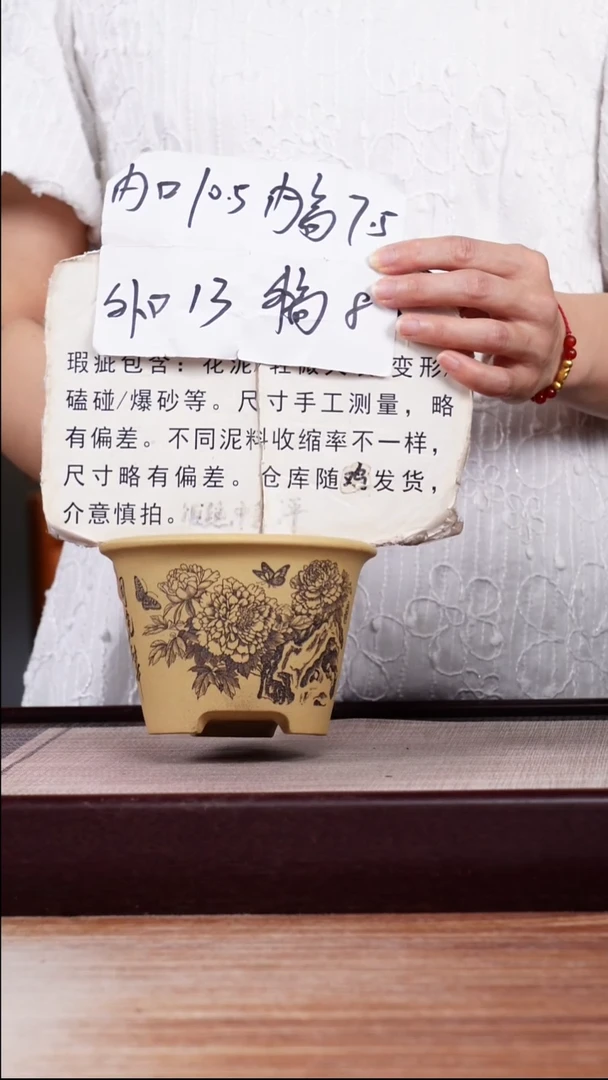 内口10.5 内高7.5
外口13 高8
瑕疵包含：花泥/轻微 变形/
磕碰/爆砂等。尺寸手工测量，略
有偏差。不同泥料收缩率不一样，
尺寸略有偏差。仓库随鸡发货，
介意慎拍。